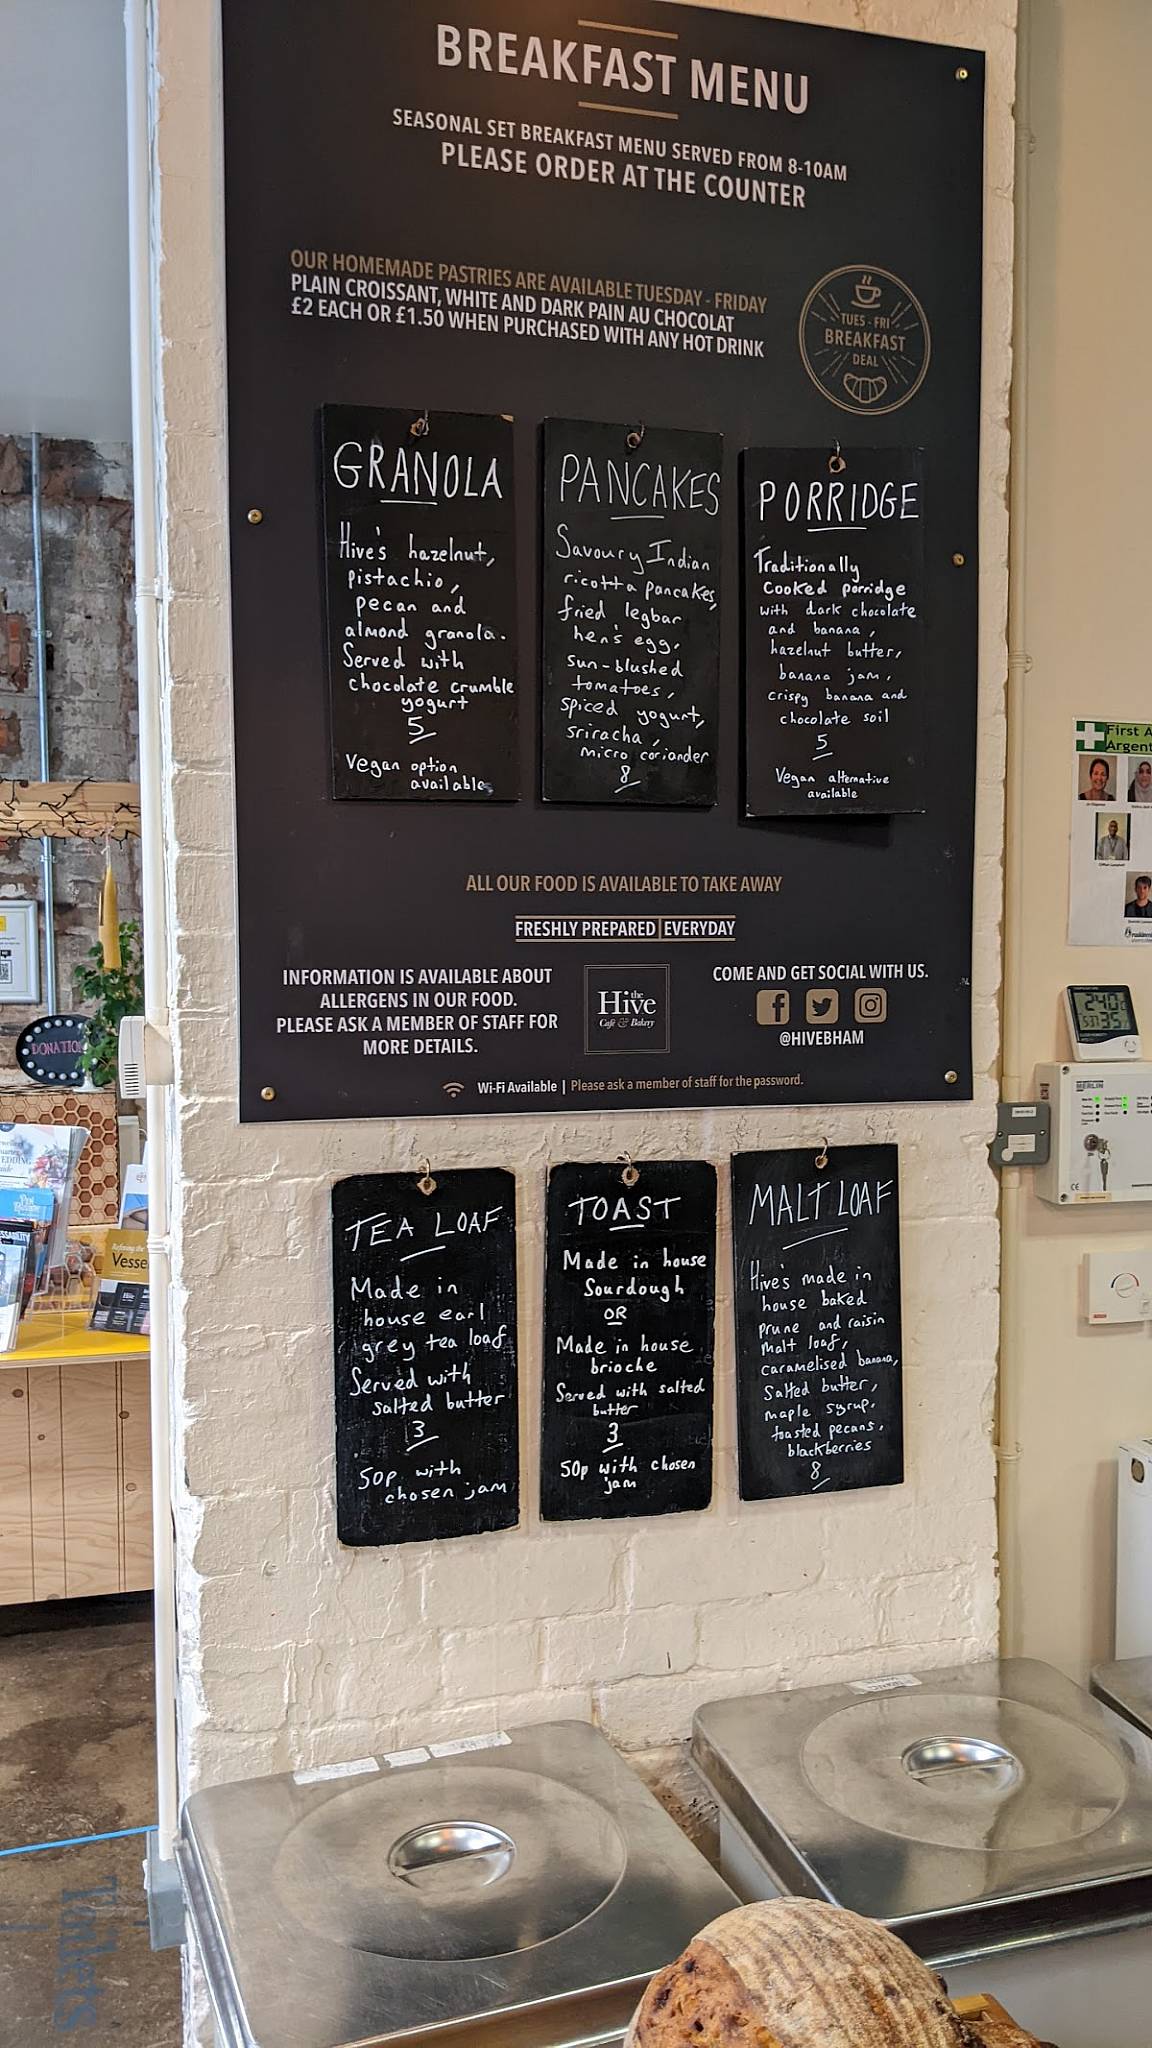 BREAKFAST MENU
SEASONAL SET BREAKFAST MENU SERVED FROM 8-10AM
PLEASE ORDER AT THE COUNTER
OUR HOMEMADE PASTRIES ARE AVAILABLE TUESDAY - FRIDAY
PLAIN CROISSANT, WHITE AND DARK PAIN AU CHOCOLAT
£2 EACH OR £1.50 WHEN PURCHASED WITH ANY HOT DRINK
TUES - FRI
BREAKFAST
DEAL
GRANOLA
Hive's hazelnut,
pistachio,
pecan and
almond granola.
Served with
chocolate crumble
yogurt
5
Vegan option
available
PANCAKES
Savoury Indian
ricotta pancakes,
fried legbar
hen's egg,
sun-blushed
tomatoes,
spiced yogurt,
sriracha,
micro coriander
8
PORRIDGE
Traditionally
cooked porridge
with dark chocolate
and banana,
hazelnut butter,
banana jam,
crispy banana and
chocolate soil
5
Vegan alternative
available
ALL OUR FOOD IS AVAILABLE TO TAKE AWAY
FRESHLY PREPARED | EVERYDAY
INFORMATION IS AVAILABLE ABOUT
ALLERGENS IN OUR FOOD.
PLEASE ASK A MEMBER OF STAFF FOR
MORE DETAILS.
the
Hive
Café & Bakery
COME AND GET SOCIAL WITH US.
@HIVEBHAM
Wi-Fi Available | Please ask a member of staff for the password.
TEA LOAF
Made in
house earl
grey tea loaf
Served with
salted butter
3
50p with
chosen jam
TOAST
Made in house
Sourdough
OR
Made in house
brioche
Served with salted
butter
3
50p with chosen
jam
MALT LOAF
Hive's made in
house baked
prune and raisin
malt loaf,
caramelised banana,
salted butter,
maple syrup,
toasted pecans,
blackberries
8
First A
Argent
MERLIN
DONATIO
Vesse
Toilets